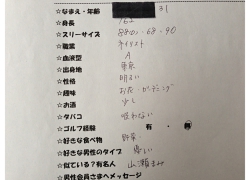 ☆なまえ・年齢 31
☆身長 162
☆スリーサイズ 88(D)・68・90
☆職業 ネイリスト
☆血液型 A
☆出身地 東京
☆性格 明るい
☆趣味 お花・ガーデニング
☆お酒 少し
☆タバコ 吸わない
☆ゴルフ経験 有・無
☆好きな食べ物 野菜
☆好きな男性のタイプ 優しい
☆似ている?有名人 山瀬まみ
☆男性会員さまへメッセージ